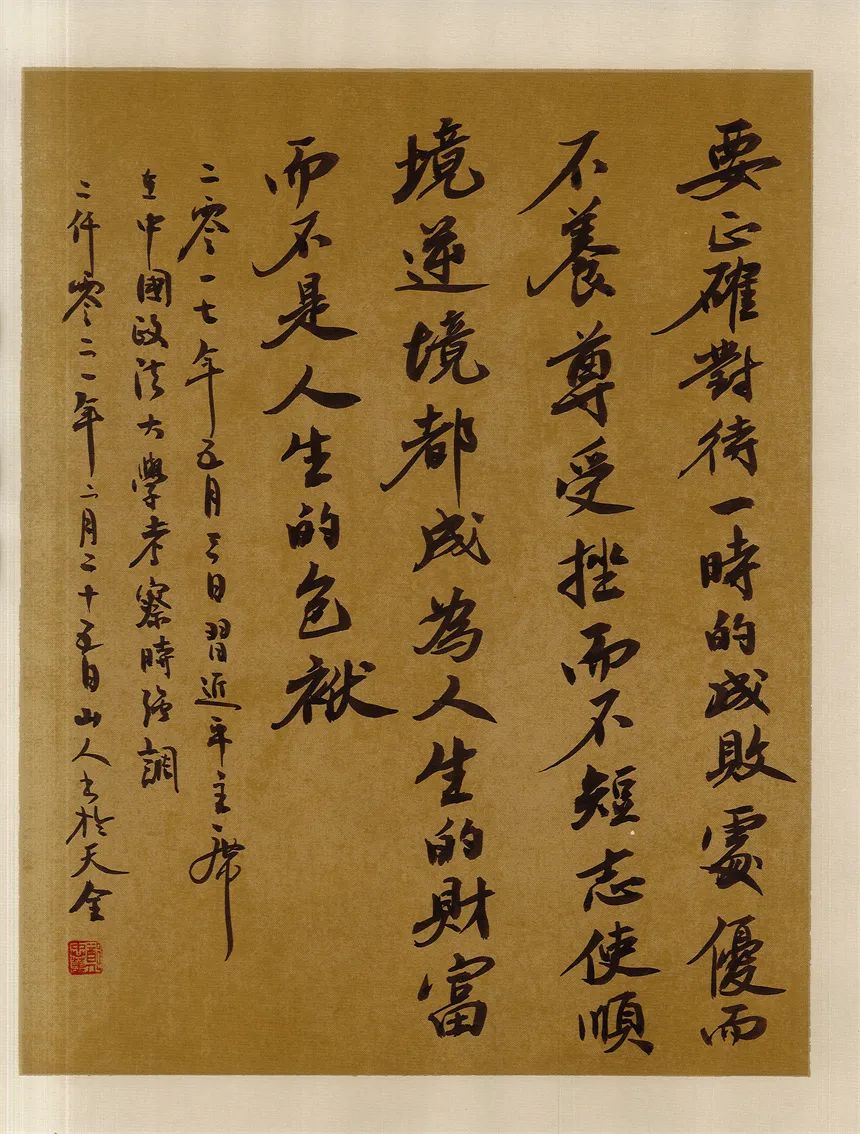 要正確對待一時的成敗處優而
不養尊受挫而不短志使順
境逆境都成為人生的財富
而不是人生的包袱
二零一七年五月三日習近平主席
在中國政法大學考察時強調
二仟零二一年二月二十五日山人书於天全